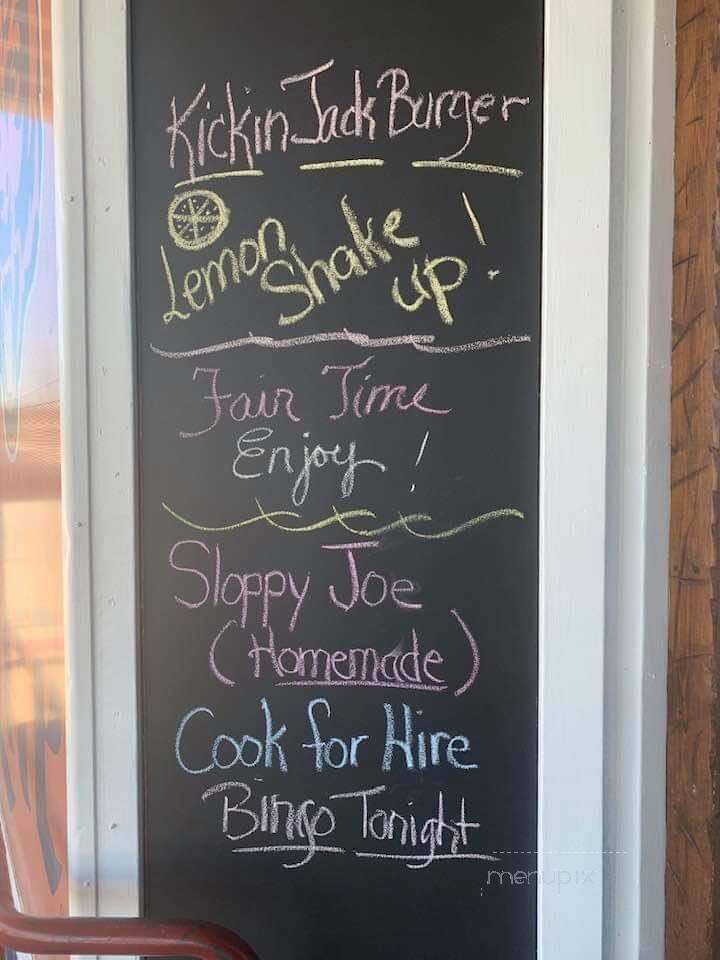 Kickin Jack Burger
Lemon Shake up!
Fair Time
Enjoy!
Sloppy Joe
(Homemade)
Cook for Hire
Bingo Tonight
menupix